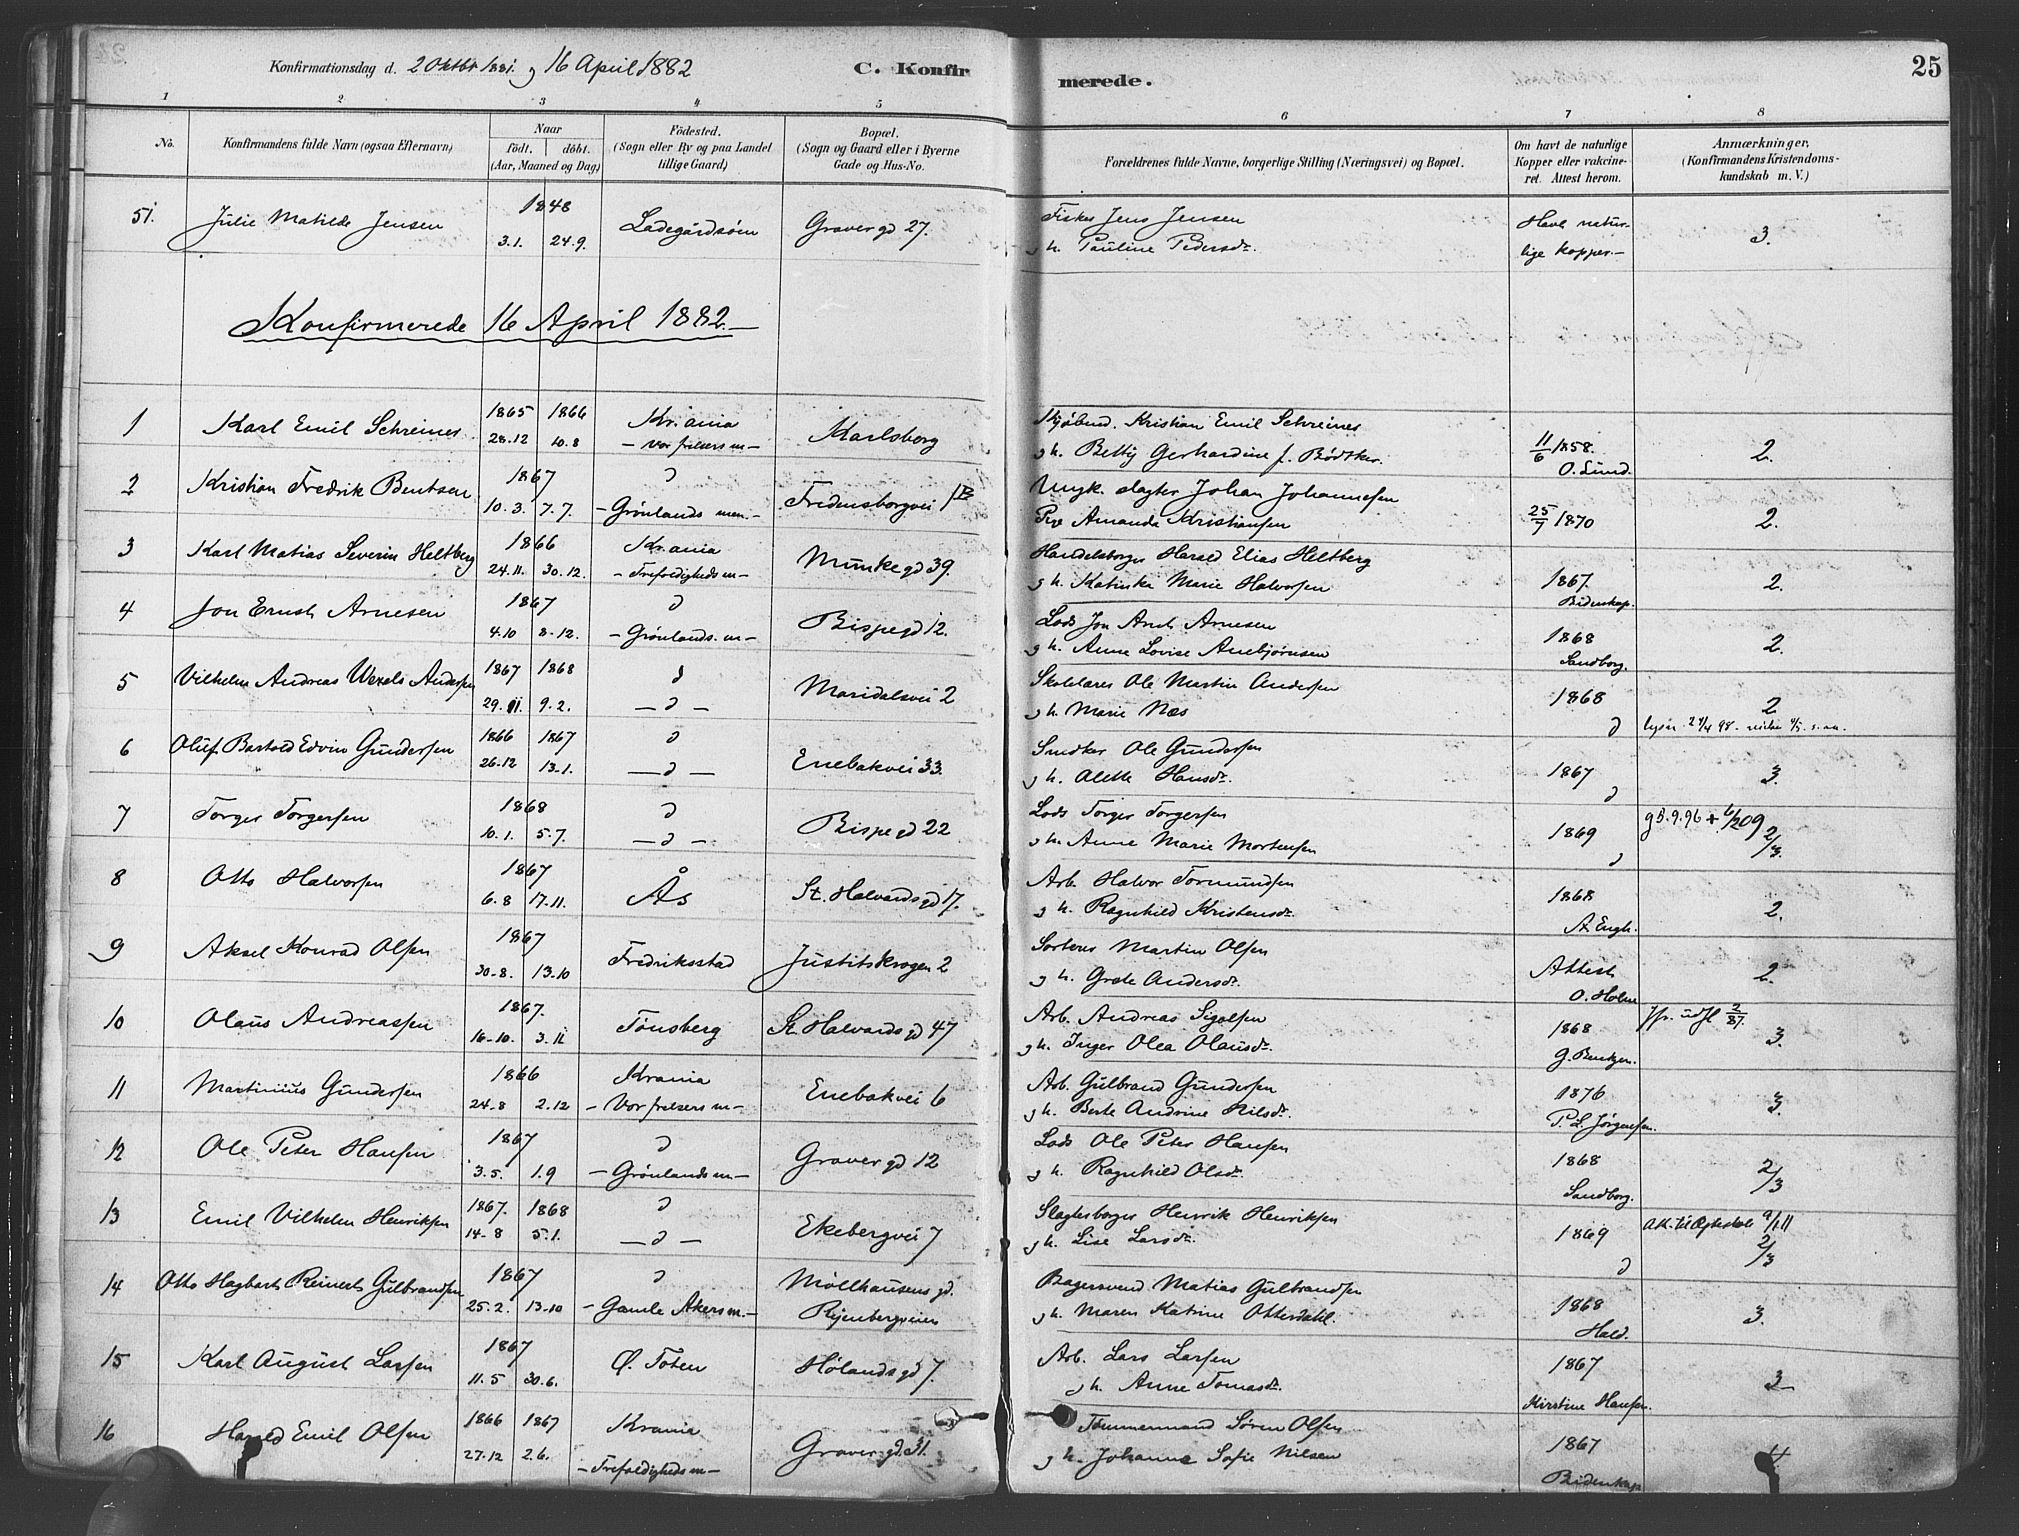 Konfirmationsdag d. 2 Oktbr 1881. og 16 April 1882
C. Konfirmerede.
25
1 2 3 4 5 6 7 8
No.
Konfirmandens fulde Navn (ogsaa Efternavn)
Naar
födt. döbt.
(Aar, Maaned og Dag)
Födested.
(Sogn eller By og paa Landet
tillige Gaard)
Bopæl.
(Sogn og Gaard eller i Byerne
Gade og Hus-No.
Forældrenes fulde Navne, borgerlige Stilling (Næringsvei) og Bopæl.
Om havt de naturlige
Kopper eller vakcine-
ret. Attest herom.
Anmærkninger.
(Konfirmandens Kristendoms-
kundskab m. V.)
51. Julie Matilde Jensen 1848 Ladegårdsøen Graver gd 27. Fisker Jens Jensen Havt natur-
3.1. 24.9. og h. Pauline Pedersdr. lige kopper.— 3.
Konfirmerede 16 April 1882.—
1 Karl Emil Schreiner 1865 1866 Kr.ania Karlsborg Kjøbmd. Kristian Emil Schreiner
28.12 10.8 — Vor frelsers m— og h. Betty Gerhardine f. Bødtker. 11/6 1858. O. Lund. 2.
2 Kristian Fredrik Bentsen 1867 d Fredensborgvei 1B Ungk. slagter Johan Johannesen
10.3. 7.7. — Grönlands men.— Pige Amanda Kristiansen 25/7 1870 2.
3 Karl Matias Severin Heltberg 1866 Krania Munkegd 39. Handelsborger Harald Elias Heltberg
24.11. 30.12. — Trefoldigheds m— og h. Katinka Marie Halvorsen 1867. Bidenkap. 2.
4 Jon Ernst Arnesen 1867 d Bispegd 12. Lods Jon Arnt Arnesen
4.10 8-12. — Grönlands. m— og h. Anne Lovise Anebjörnsen 1868 Sandborg. 2.
5 Vilhelm Andreas Wexels Andersen 1867 1868 d Maridalsvei 2 Skolelærer Ole Martin Andersen
29.11. 9.2. — d — og h. Marie Næs 1868 d 2.
6 Oluf Bartold Edvin Gundersen 1866 1867 d Enebakvei 33. Snedker Ole Gundersen
26.12 13.1. — d — og h. Alette Hansdr. 1867 d 3.
7 Torger Torgersen 1868 d Bispegd 22 Lods Torger Torgersen
10.1. 5.7. — d — og h. Anne Marie Mortensen 1869 d g 5.9.96 2/3.
8 Otto Halvorsen 1867 Ås St. Halvardsgd 17. Arb. Halvor Tormundsen
6.8 17.11. og h. Ragnhild Kristensdr. 1868 A. Engh. 2.
9 Aksel Konrad Olsen 1867 Fredriksstad Justitskrogen 2 Martin Olsen
30-8. 13.10 og h. Grete Andersdr. Attest O. Holm 2.
10 Olaus Andreassen 1867. Tönsberg St. Halvardsgd 47 Arb. Andreas Sigolsen
16-10. 3.11 og h. Inger Olea Olausdr. 1868 G. Bentzen. 3.
11 Martinius Gundersen 1866 Krania Enebakvei 6 Arb. Gulbrand Gundersen
24-8 2.12 — Vor frelsers m— og h. Berte Andrine Nilsdr. 1876 P. L. Jørgensen. 3.
12 Ole Peter Hansen 1867 d Graver gd 12 Lods Ole Peter Hansen
3.5. 1.9 — Grönlands m— og h. Ragnhild Olsdr. 1868 Sandborg. 2/3
13 Emil Vilhelm Henriksen 1867. 1868 d Ekebergvei 7 Slagterborger Henrik Henriksen
14-8 5.1. — d — og h. Lise Larsdr. 1869 d 2/3
14 Otto Hagbart Reinert Gulbrandsen 1867 d Möllhausens gd. Bagersvend Matias Gulbrandsen
25.2. 13-10 — Gamle Akers m— Ryenbergveien og h. Maren Katrine Otterdahl. 1868 Hald. 3.
15 Karl August Larsen 1867 Ø. Toten Hølandsgd 7. Arb. Lars Larsen
11.5 30.6. og h. Anne Tomasdr. 1867 Kirstine Hansen. 3
16 Harald Emil Olsen 1866 1867 Krania Graver gd. 31. Tömmermand Sören Olsen
27.12 2.6. — Trefoldigheds m— og h. Johanne Sofie Nilsen 1867 Bidenkap